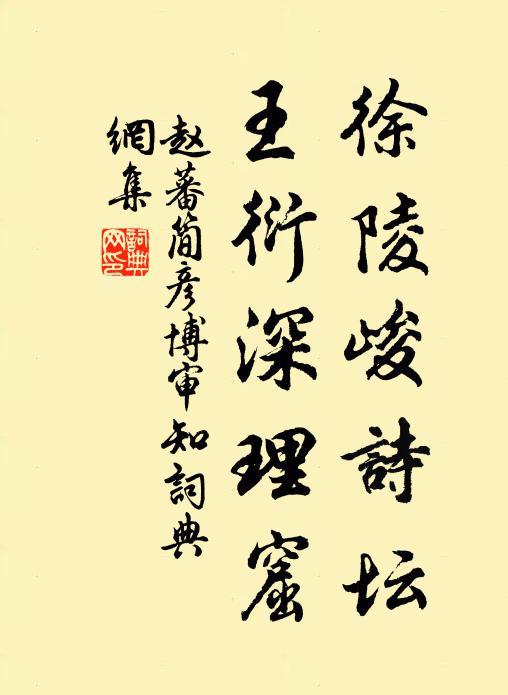 徐陵峻詩坛
王衍深理窟
赵蕃简彦博审知詞典
網集
詞典
网印